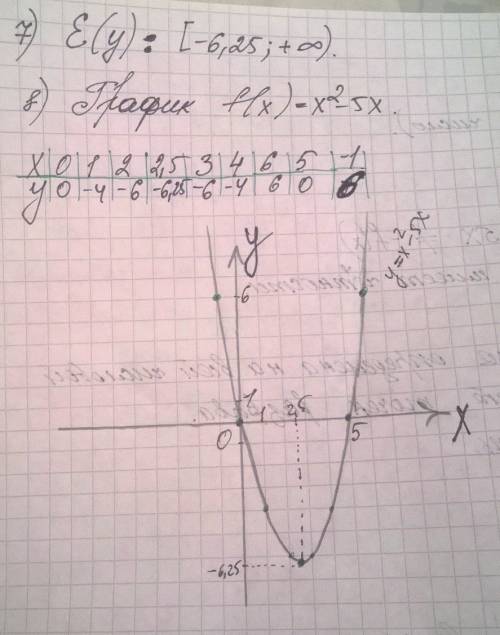 7) E(y): [-6,25; +∞).
8) График f(x)=x²-5x.
X 0 1 2 2,5 3 4 6 5 -1
y 0 -4 -6 -6,25 -6 -4 6 0 6
y
y=x²-5x
6
1
1 2,5
0 5 X
-6,25